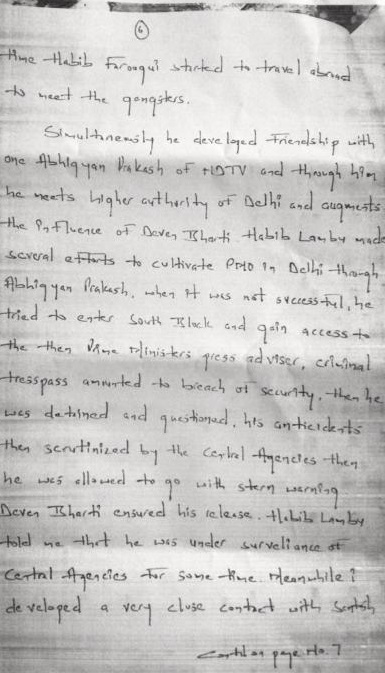 6
time Habib Farooqui started to travel abroad
to meet the gongsters.
Simultanemsly he developed Friendship with
one Abhigyan Prakash of NDTV and through him
he meets higher authority of Delhi and augments
the influence of Deven Bharti. Habib Lamby made
several efforts to cultivate PMO in Delhi through
Abhigyan Prakash, when it was not successful, he
tried to enter South Block and gain access to
the then Prime Ministers press adviser, criminal
tresspass amounted to breach of security, then he
was detained and questioned, his anticidents
then scrutinized by the Central Agencies then
he was allowed to go with stern warning
Deven Bharti ensured his release. Habib Lamby
told me that he was under surveliance of
Central Agencies for some time. Meanwhile i
developed a very close contact with
Contd on page No. 7